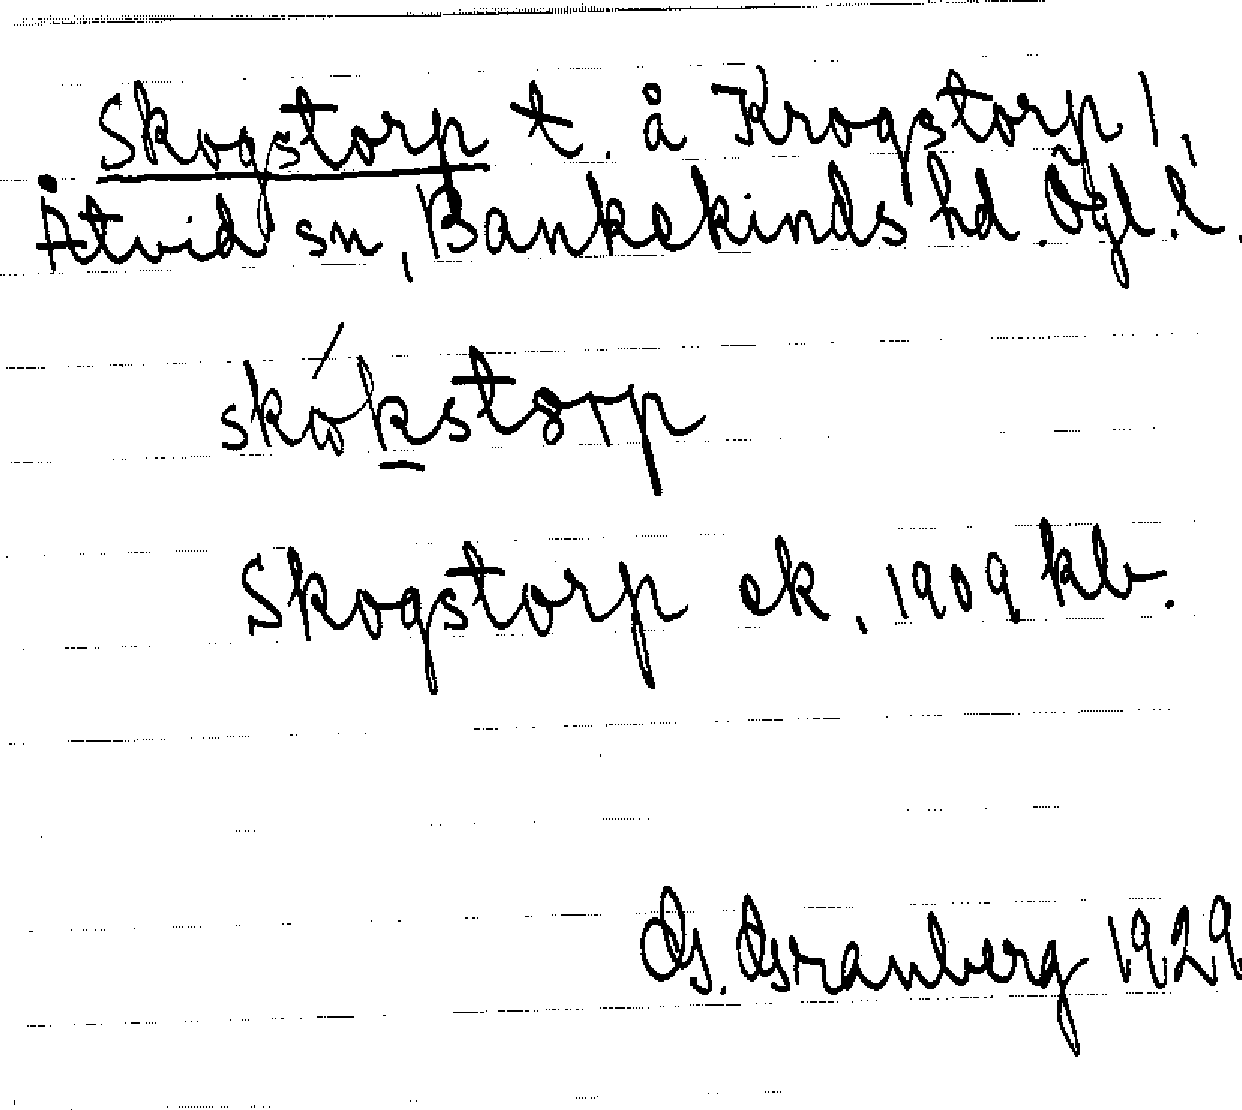 Skogstorp t. å Krogstorp 1,
Åtvid sn, Bankekinds hd. Ögl. l.
skókstorp
Skogstorp ek. 1909 kb.
G. Granberg 1929